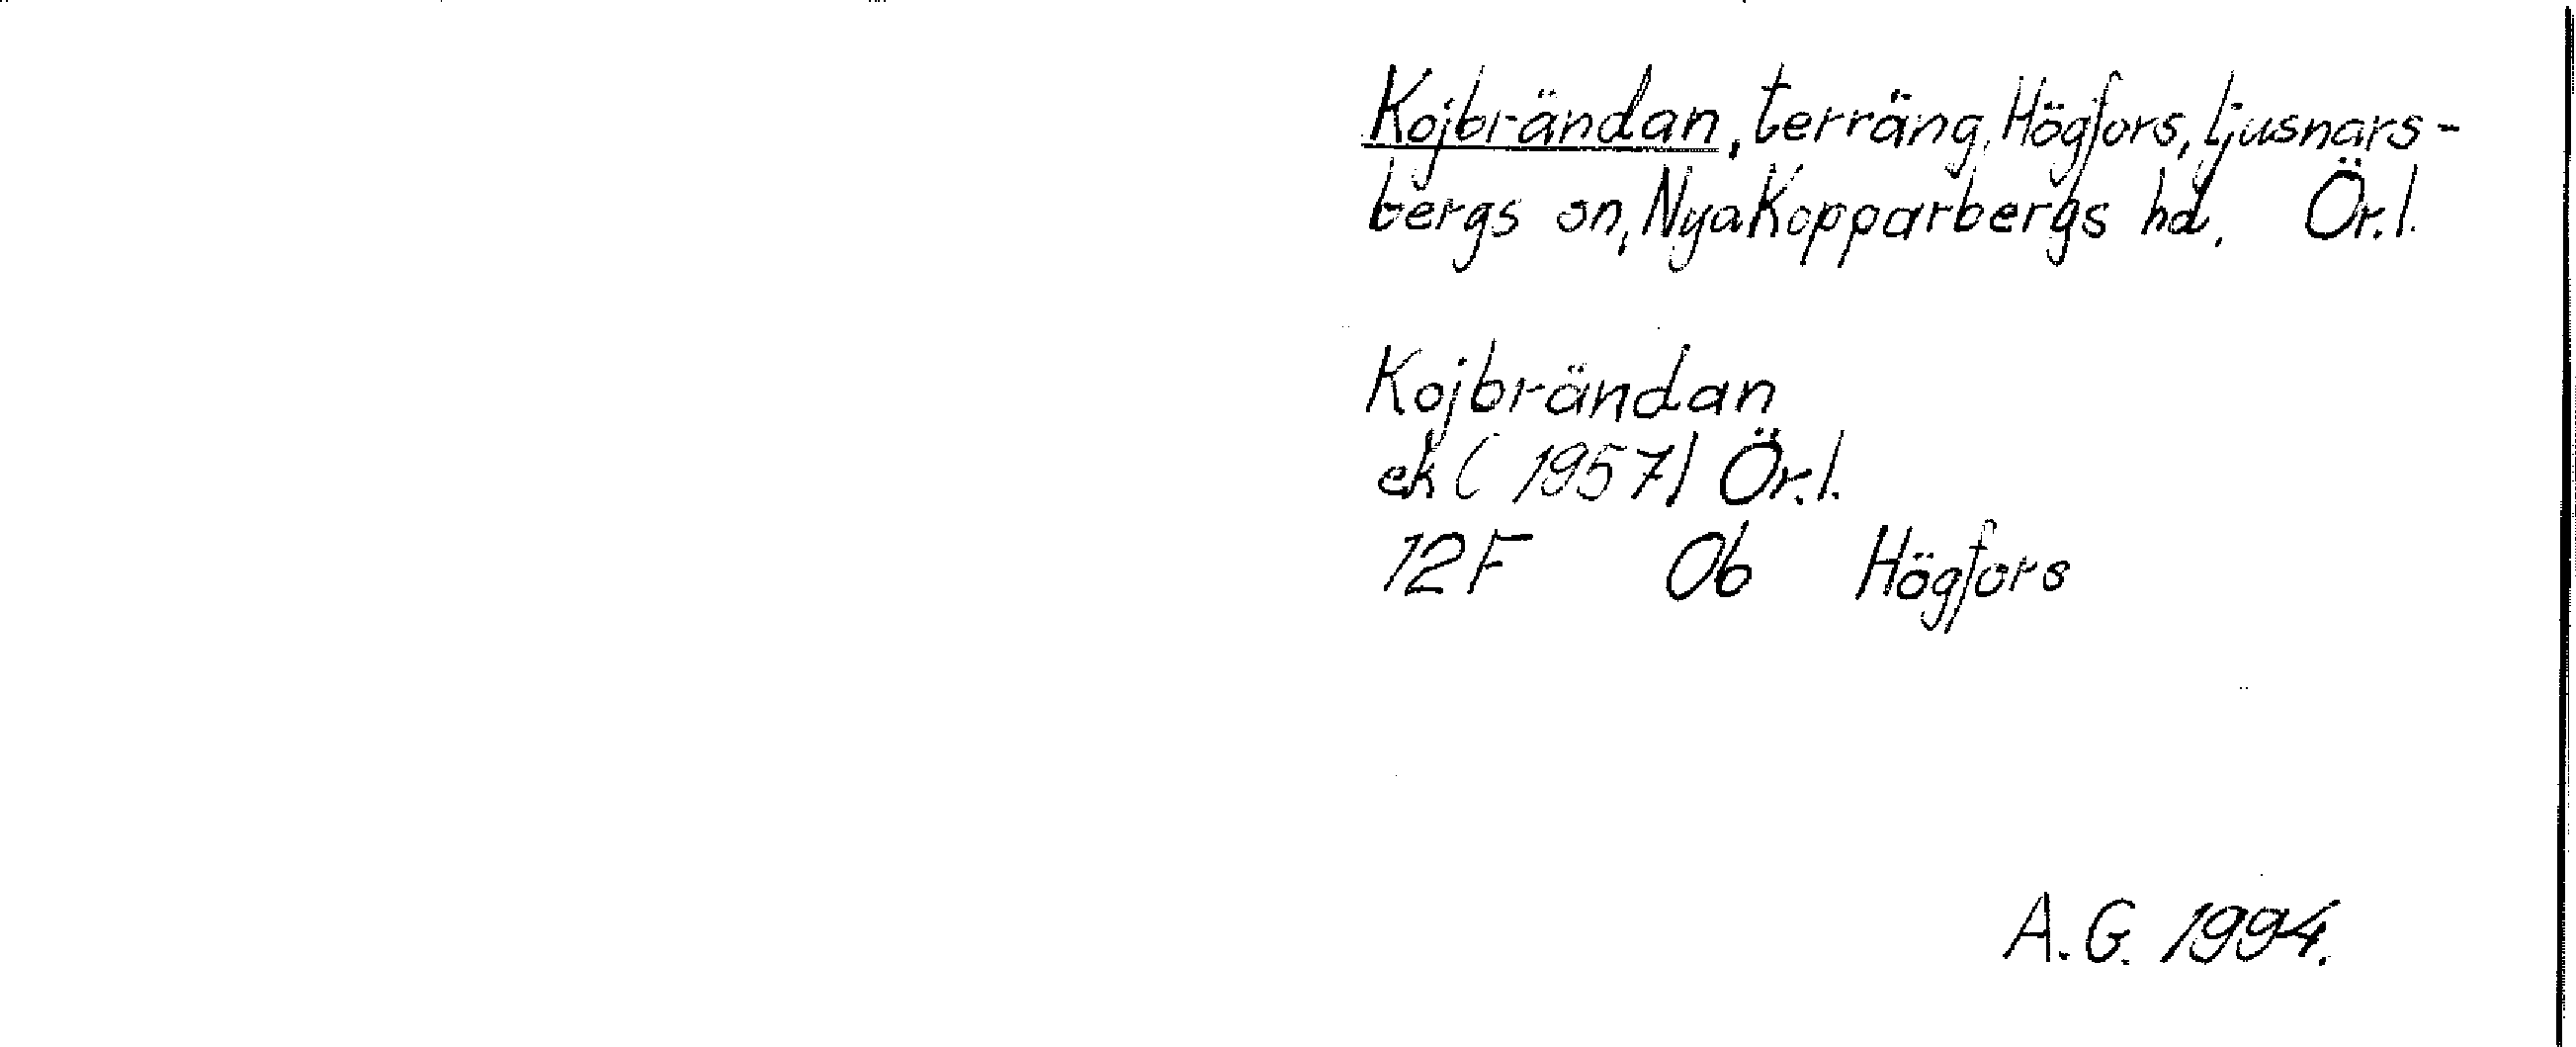 Kojbrändan, terräng, Högfors, Ljusnars-
bergs sn, Nya Kopparbergs hd, Ör.l.
Kojbrändan
ek (1957) Ör.l.
12F 0b Högfors
A.G. 1994.